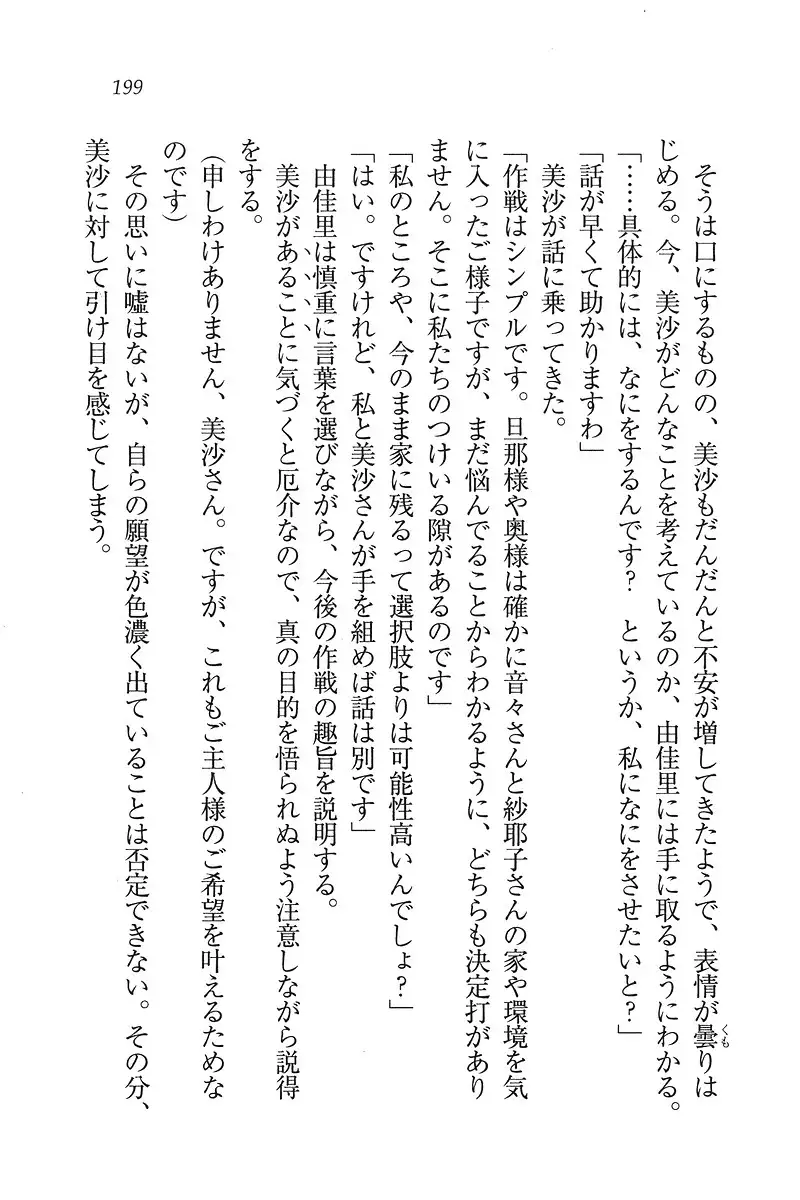 199
　そうは口にするものの、美沙もだんだんと不安が増してきたようで、表情が曇りは
くも
じめる。今、美沙がどんなことを考えているのか、由佳里には手に取るようにわかる。
「……具体的には、なにをするんです？　というか、私になにをさせたいと？」
「話が早くて助かりますわ」
　美沙が話に乗ってきた。
「作戦はシンプルです。旦那様や奥様は確かに音々さんと紗耶子さんの家や環境を気
に入ったご様子ですが、まだ悩んでることからわかるように、どちらも決定打があり
ません。そこに私たちのつけいる隙があるのです」
「私のところや、今のまま家に残るって選択肢よりは可能性高いんでしょ？」
「はい。ですけれど、私と美沙さんが手を組めば話は別です」
　由佳里は慎重に言葉を選びながら、今後の作戦の趣旨を説明する。
　美沙があることに気づくと厄介なので、真の目的を悟られぬよう注意しながら説得
をする。
（申しわけありません、美沙さん。ですが、これもご主人様のご希望を叶えるためな
のです）
　その思いに嘘はないが、自らの願望が色濃く出ていることは否定できない。その分、
美沙に対して引け目を感じてしまう。